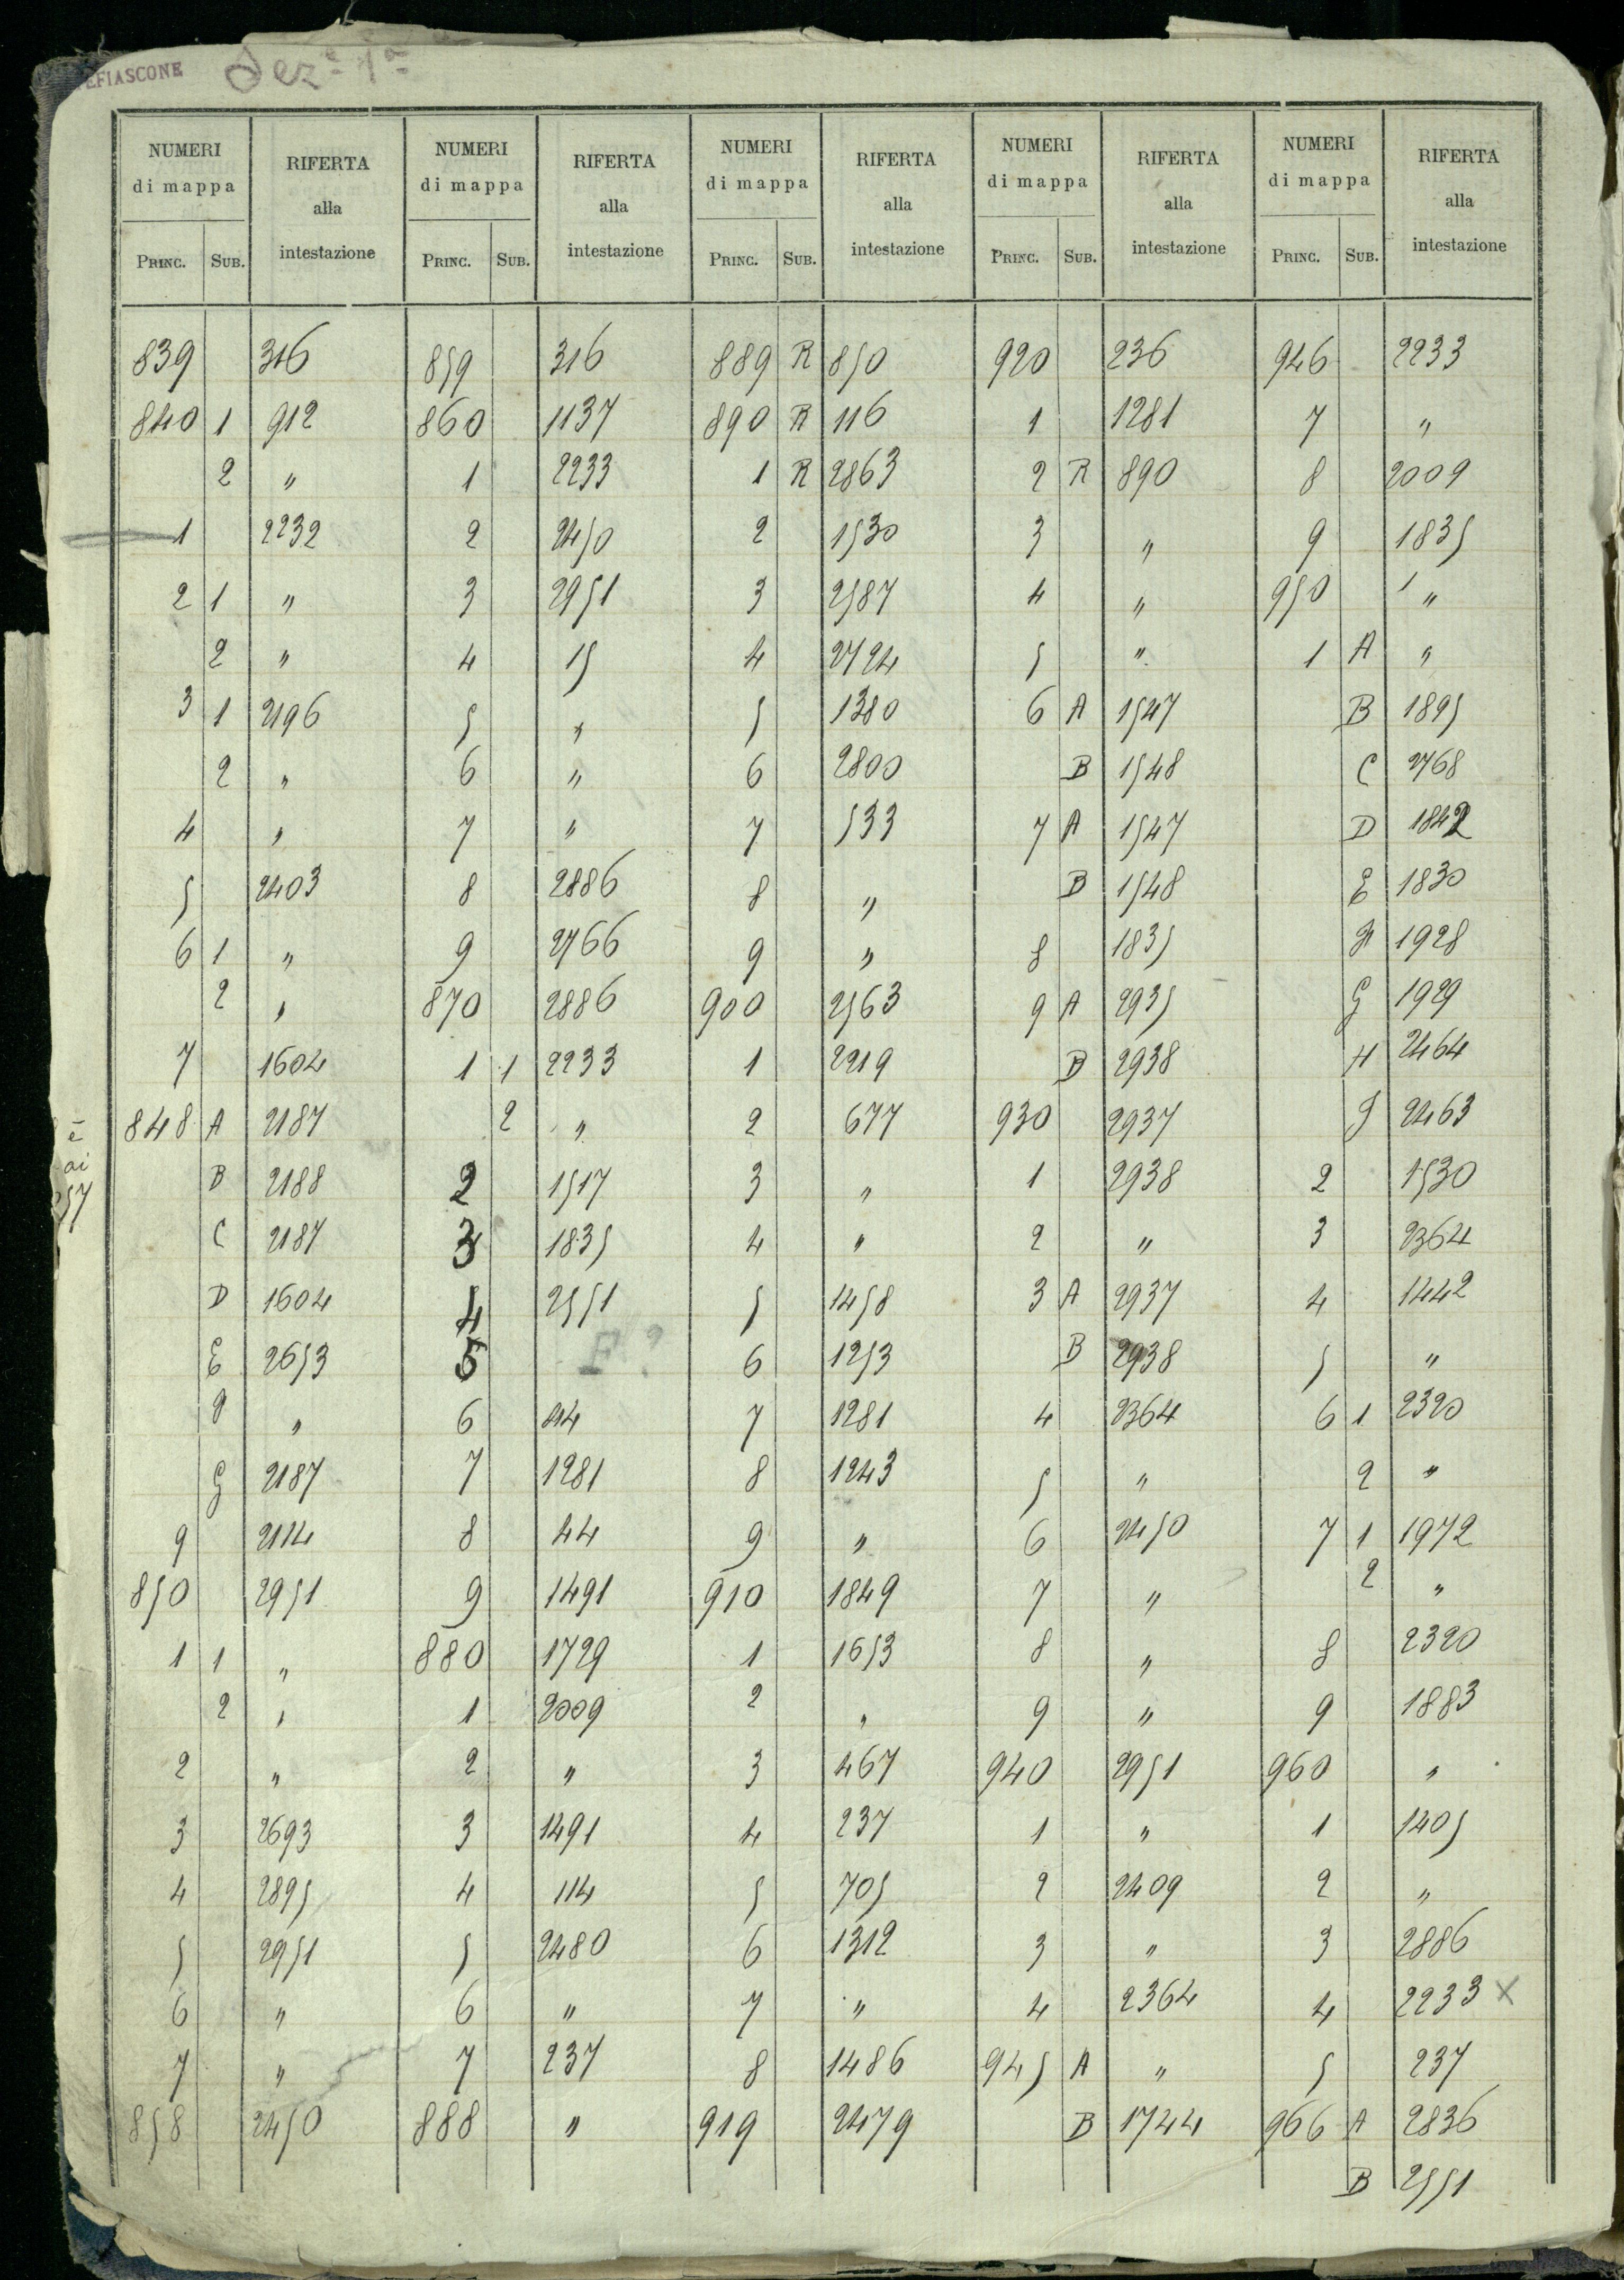 EFIASCONE Sezᵉ 1ª
NUMERI di mappa RIFERTA alla intestazione NUMERI di mappa RIFERTA alla intestazione NUMERI di mappa RIFERTA alla intestazione NUMERI di mappa RIFERTA alla intestazione NUMERI di mappa RIFERTA alla intestazione
PRINC. SUB. PRINC. SUB. PRINC. SUB. PRINC. SUB. PRINC. SUB.
839 316 859 316 889 R 850 920 236 946 2233
840 1 912 860 1137 890 R 116 1 1281 7 "
2 " 1 2233 1 R 2863 2 R 890 8 2009
1 2232 2 2450 2 1530 3 " 9 1835
2 1 " 3 2951 3 2587 4 " 950 "
2 " 4 15 4 2724 5 " 1 A "
3 1 2196 5 " 5 1380 6 A 1547 B 1895
2 " 6 " 6 2800 B 1548 C 2768
4 " 7 " 7 533 7 A 1547 D 1842
5 2403 8 2886 8 " B 1548 E 1830
6 1 " 9 2766 9 " 8 1835 F 1928
2 " 870 2886 900 2563 9 A 2935 G 1929
7 1604 1 1 2233 1 2219 B 2938 H 2464
848 A 2187 2 " 2 677 930 2937 J 2463
B 2188 2 1517 3 " 1 2938 2 1530
C 2187 3 1835 4 " 2 " 3 2364
D 1604 4 2551 5 1458 3 A 2937 4 1442
E 2653 5 F? 6 1253 B 2938 5 "
F " 6 44 7 1281 4 2364 6 1 2320
G 2187 7 1281 8 1243 5 " 2 "
9 2114 8 44 9 " 6 2450 7 1 1972
850 2951 9 1491 910 1849 7 " 2 "
1 1 " 880 1729 1 1653 8 " 8 2320
2 " 1 2009 2 " 9 " 9 1883
2 " 2 " 3 467 940 2951 960 "
3 2693 3 1491 4 237 1 " 1 1405
4 2895 4 114 5 705 2 2409 2 "
5 2951 5 2480 6 1312 3 " 3 2886
6 " 6 " 7 " 4 2364 4 2233 X
7 " 7 237 8 1486 945 A " 5 237
858 2450 888 " 919 2479 B 1744 966 A 2836
B 2551